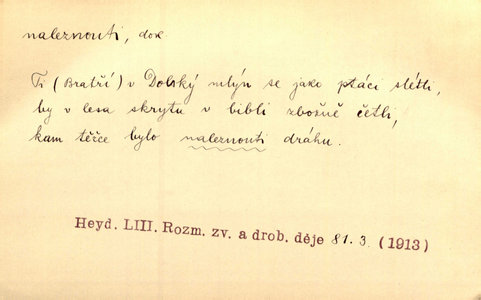 naleznouti, dok
Ti (Bratří) v Dolský mlýn se jako ptáci slétli,
by v lesa skrytu v bibli zbožně četli,
kam těžce bylo naleznouti dráhu.
Heyd. LIII. Rozm. zv. a drob. děje 81. 3. (1913)